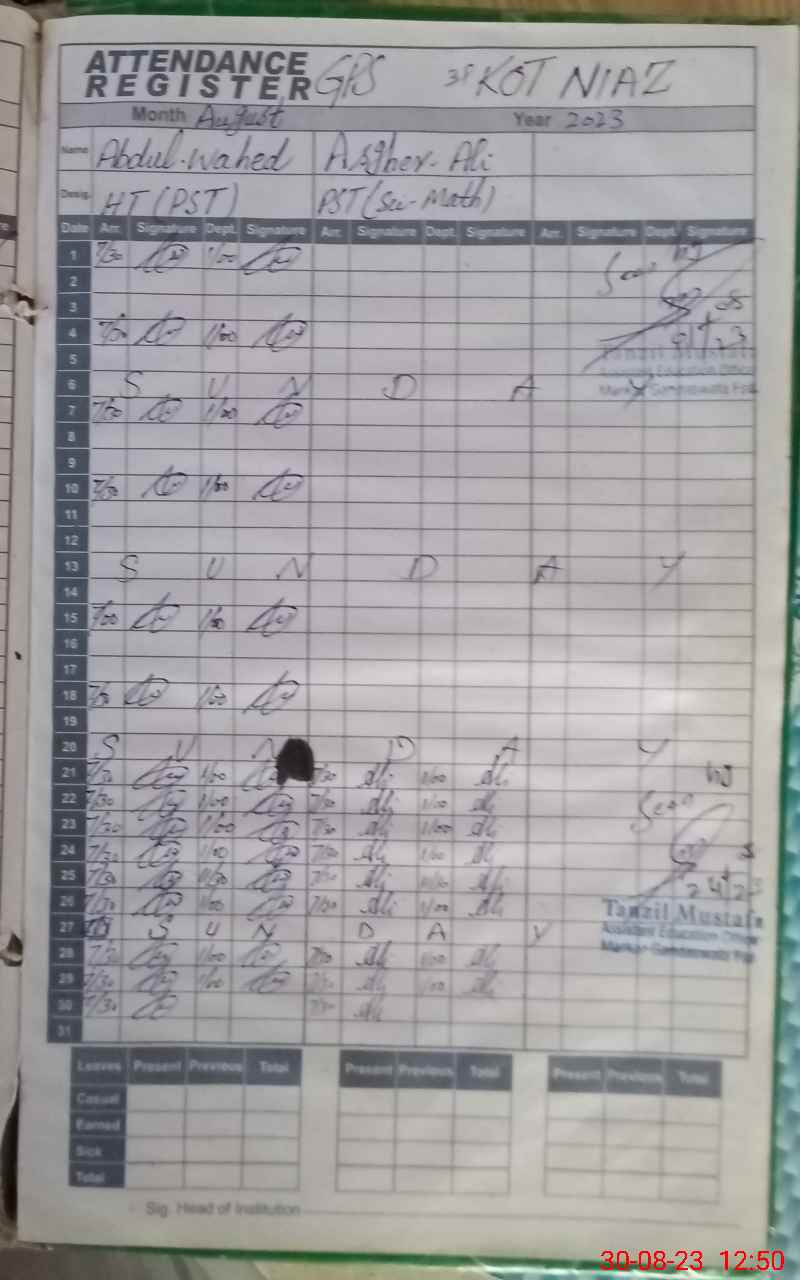 ATTENDANCE
REGISTER GPS KOT NIAZ
Month August Year 2023
Name Abdul.wahed Asgher. Ali
Desig. HT (PST) PST (Sci-Math)
Date Arr. Signature Dept. Signature Arr. Signature Dept. Signature Arr. Signature Dept. Signature
1 7/30 1/00 Seen
2
3
4 7/30 1/00
5 Tanzil Mustafa
Assistant Education Officer
6 S U N D A Y
7 7/30 1/00
8
9
10 7/30 1/00
11
12
13 S U N D A Y
14
15 7/00 1/00
16
17
18 7/30 1/00
19
20 S U N D A Y
21 7/30 1/00 7/30 Ali 1/00 Ali
22 7/30 1/00 7/30 Ali 1/00 Ali Seen
23 7/30 1/00 7/30 Ali 1/00 Ali
24 7/30 1/00 7/30 Ali 1/00 Ali
25 7/30 7/30 Ali Ali
26 7/30 1/00 7/30 Ali 1/00 Ali Tanzil Mustafa
27 S U N D A Y Assistant Education Officer
28 7/30 1/00 7/30 Ali 1/00 Ali
29 7/30 1/00 7/30 Ali 1/00 Ali
30 7/30 7/30 Ali
31
Leaves Present Previous Total Present Previous Total Present Previous Total
Casual
Earned
Sick
Total
Sig. Head of Institution
30-08-23 12:50